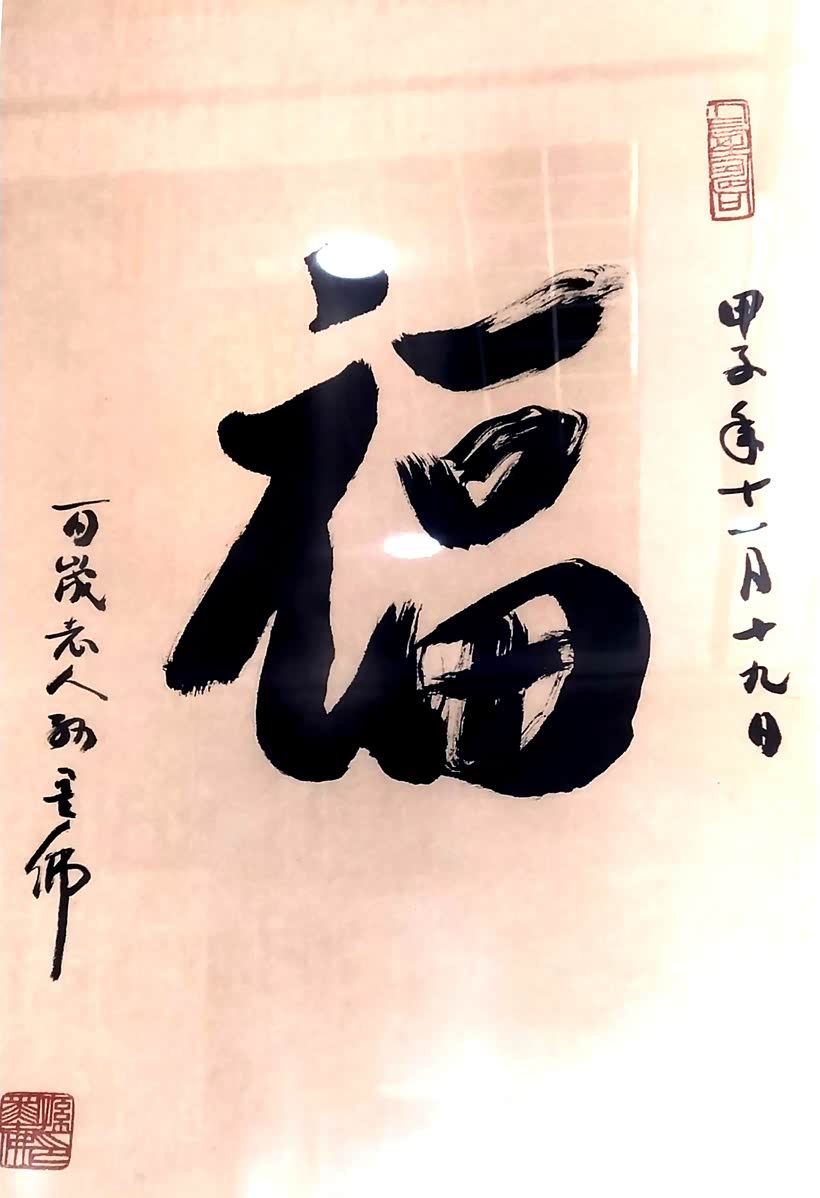 甲子年十一月十九日
福
百岁老人孙墨佛